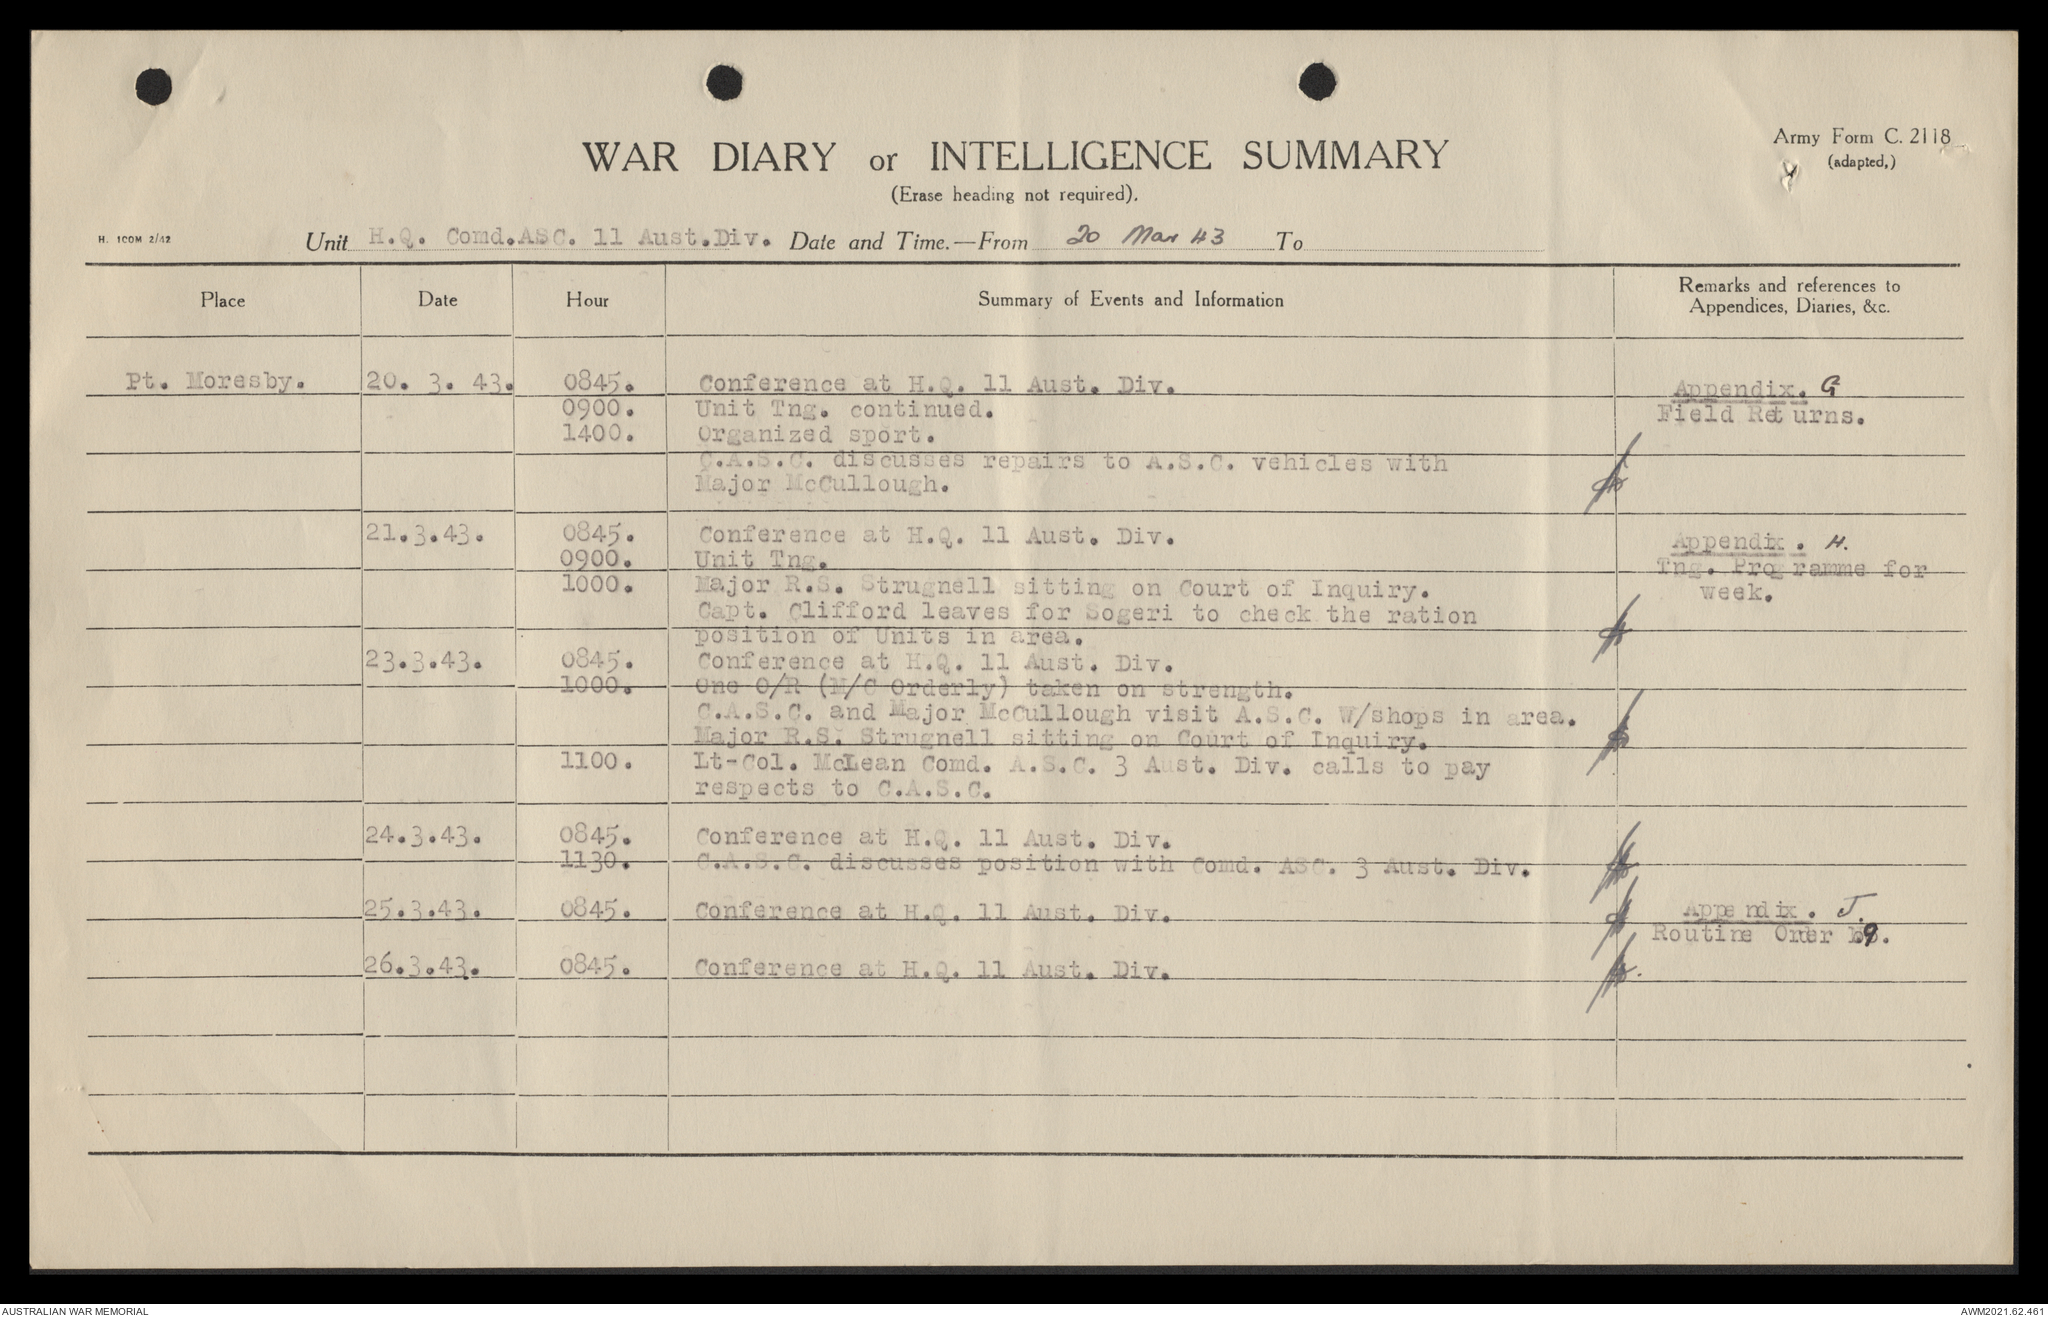 Army Form C. 2118
(adapted,)
WAR DIARY or INTELLIGENCE SUMMARY
(Erase heading not required).
H. 1COM 2/42
Unit H.Q. Comd.ASC. 11 Aust.Div. Date and Time.—From 20 Mar 43 To
Place Date Hour Summary of Events and Information Remarks and references to
Appendices, Diaries, &c.
Pt. Moresby. 20. 3. 43. 0845. Conference at H.Q. 11 Aust. Div. Appendix. G
0900. Unit Tng. continued. Field Returns.
1400. Organized sport.
C.A.S.C. discusses repairs to A.S.C. vehicles with
Major McCullough.
21.3.43. 0845. Conference at H.Q. 11 Aust. Div. Appendix. H.
0900. Unit Tng. Tng. Programme for
1000. Major R.S. Strugnell sitting on Court of Inquiry. week.
Capt. Clifford leaves for Sogeri to check the ration
position of Units in area.
23.3.43. 0845. Conference at H.Q. 11 Aust. Div.
1000. One O/R (M/C Orderly) taken on strength.
C.A.S.C. and Major McCullough visit A.S.C. W/shops in area.
Major R.S. Strugnell sitting on Court of Inquiry.
1100. Lt-Col. McLean Comd. A.S.C. 3 Aust. Div. calls to pay
respects to C.A.S.C.
24.3.43. 0845. Conference at H.Q. 11 Aust. Div.
1130. C.A.S.C. discusses position with Comd. ASC. 3 Aust. Div.
25.3.43. 0845. Conference at H.Q. 11 Aust. Div. Appendix. J.
Routine Order No. 9.
26.3.43. 0845. Conference at H.Q. 11 Aust. Div.
AUSTRALIAN WAR MEMORIAL AWM2021.62.461